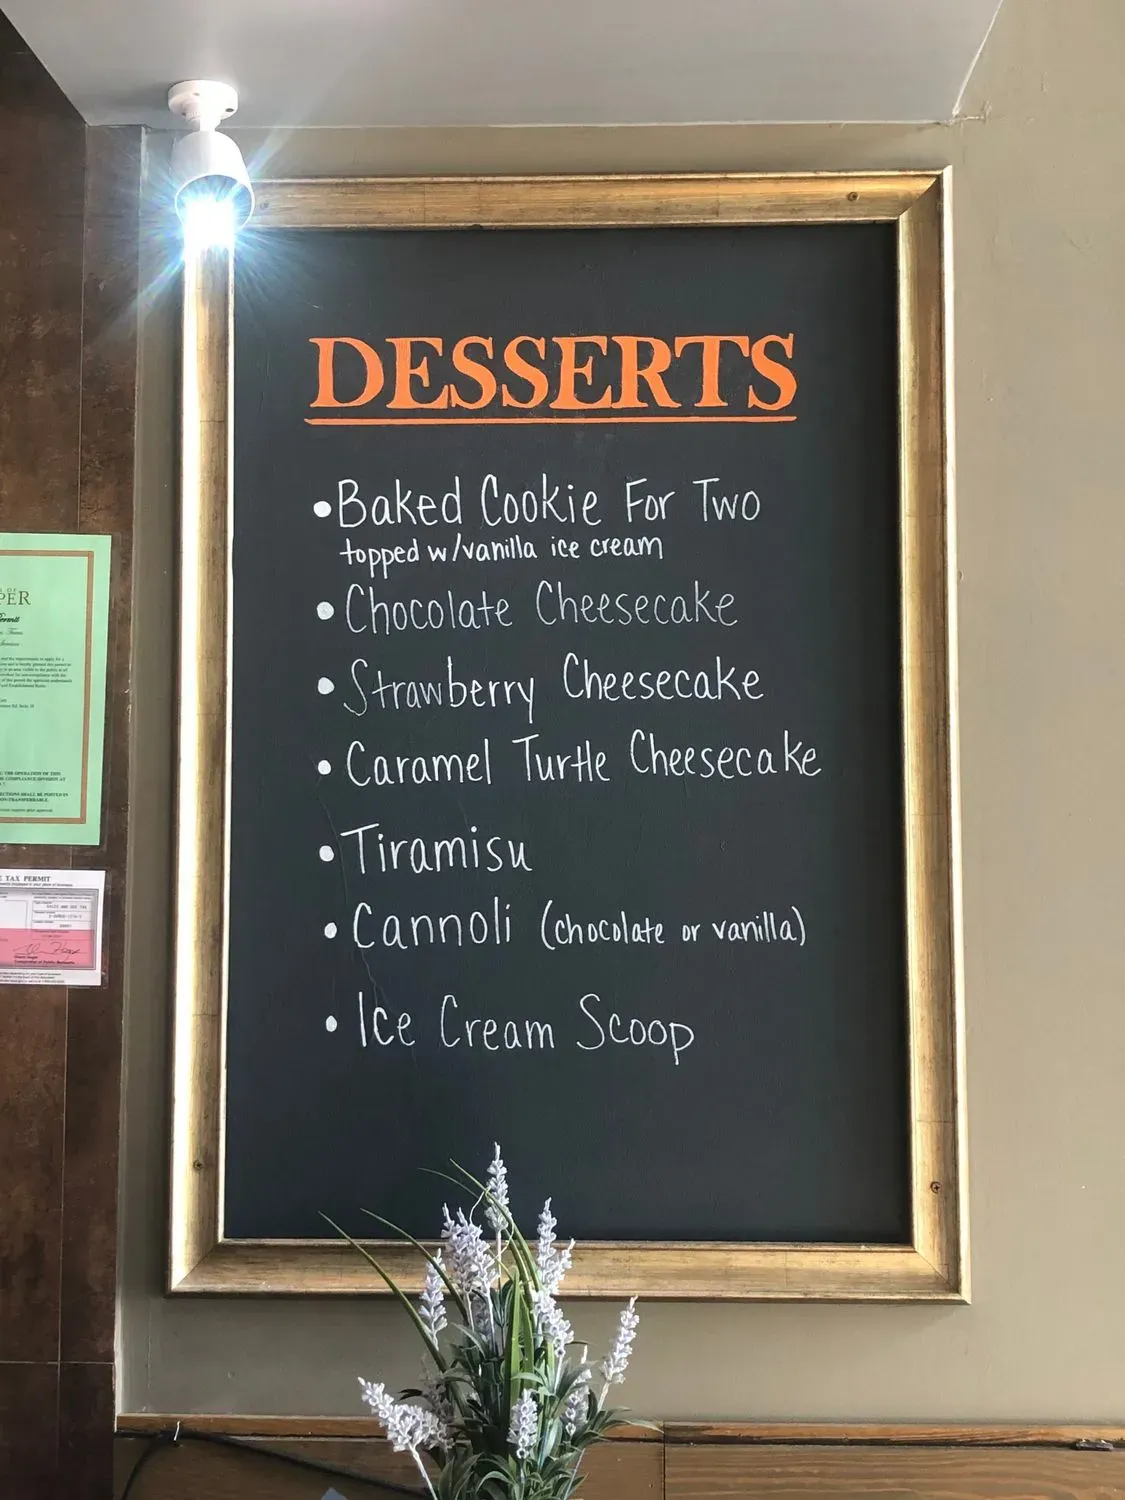 DESSERTS
•Baked Cookie For Two
topped w/vanilla ice cream
• Chocolate Cheesecake
• Strawberry Cheesecake
• Caramel Turtle Cheesecake
• Tiramisu
• Cannoli (chocolate or vanilla)
• Ice Cream Scoop
PER
TAX PERMIT